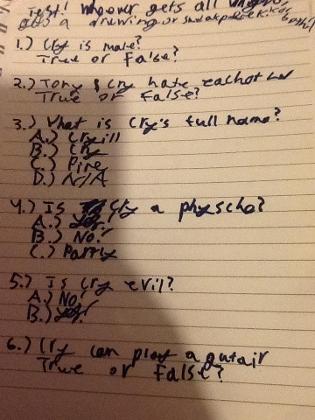 Test! Whoever gets all
gets a drawing or
1.) Cry is male?
True or False?
2.) Tony & Cry hate eachother
True or False?
3.) What is Cry's full name?
A.) Cryill
B.) Cry
C.) Pire
D.) N/A
4.) Is Cry a physcho?
A.) Yes!
B.) No!
C.) Partly
5.) Is Cry evil?
A.) No!
B.) Yes!
6.) Cry can play a gutair
True or False?